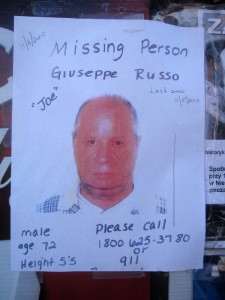 Missing Person
Giuseppe Russo
"Joe"
Last seen
male
age 72
Height 5'5
Please call
1800 625-3780
or
911